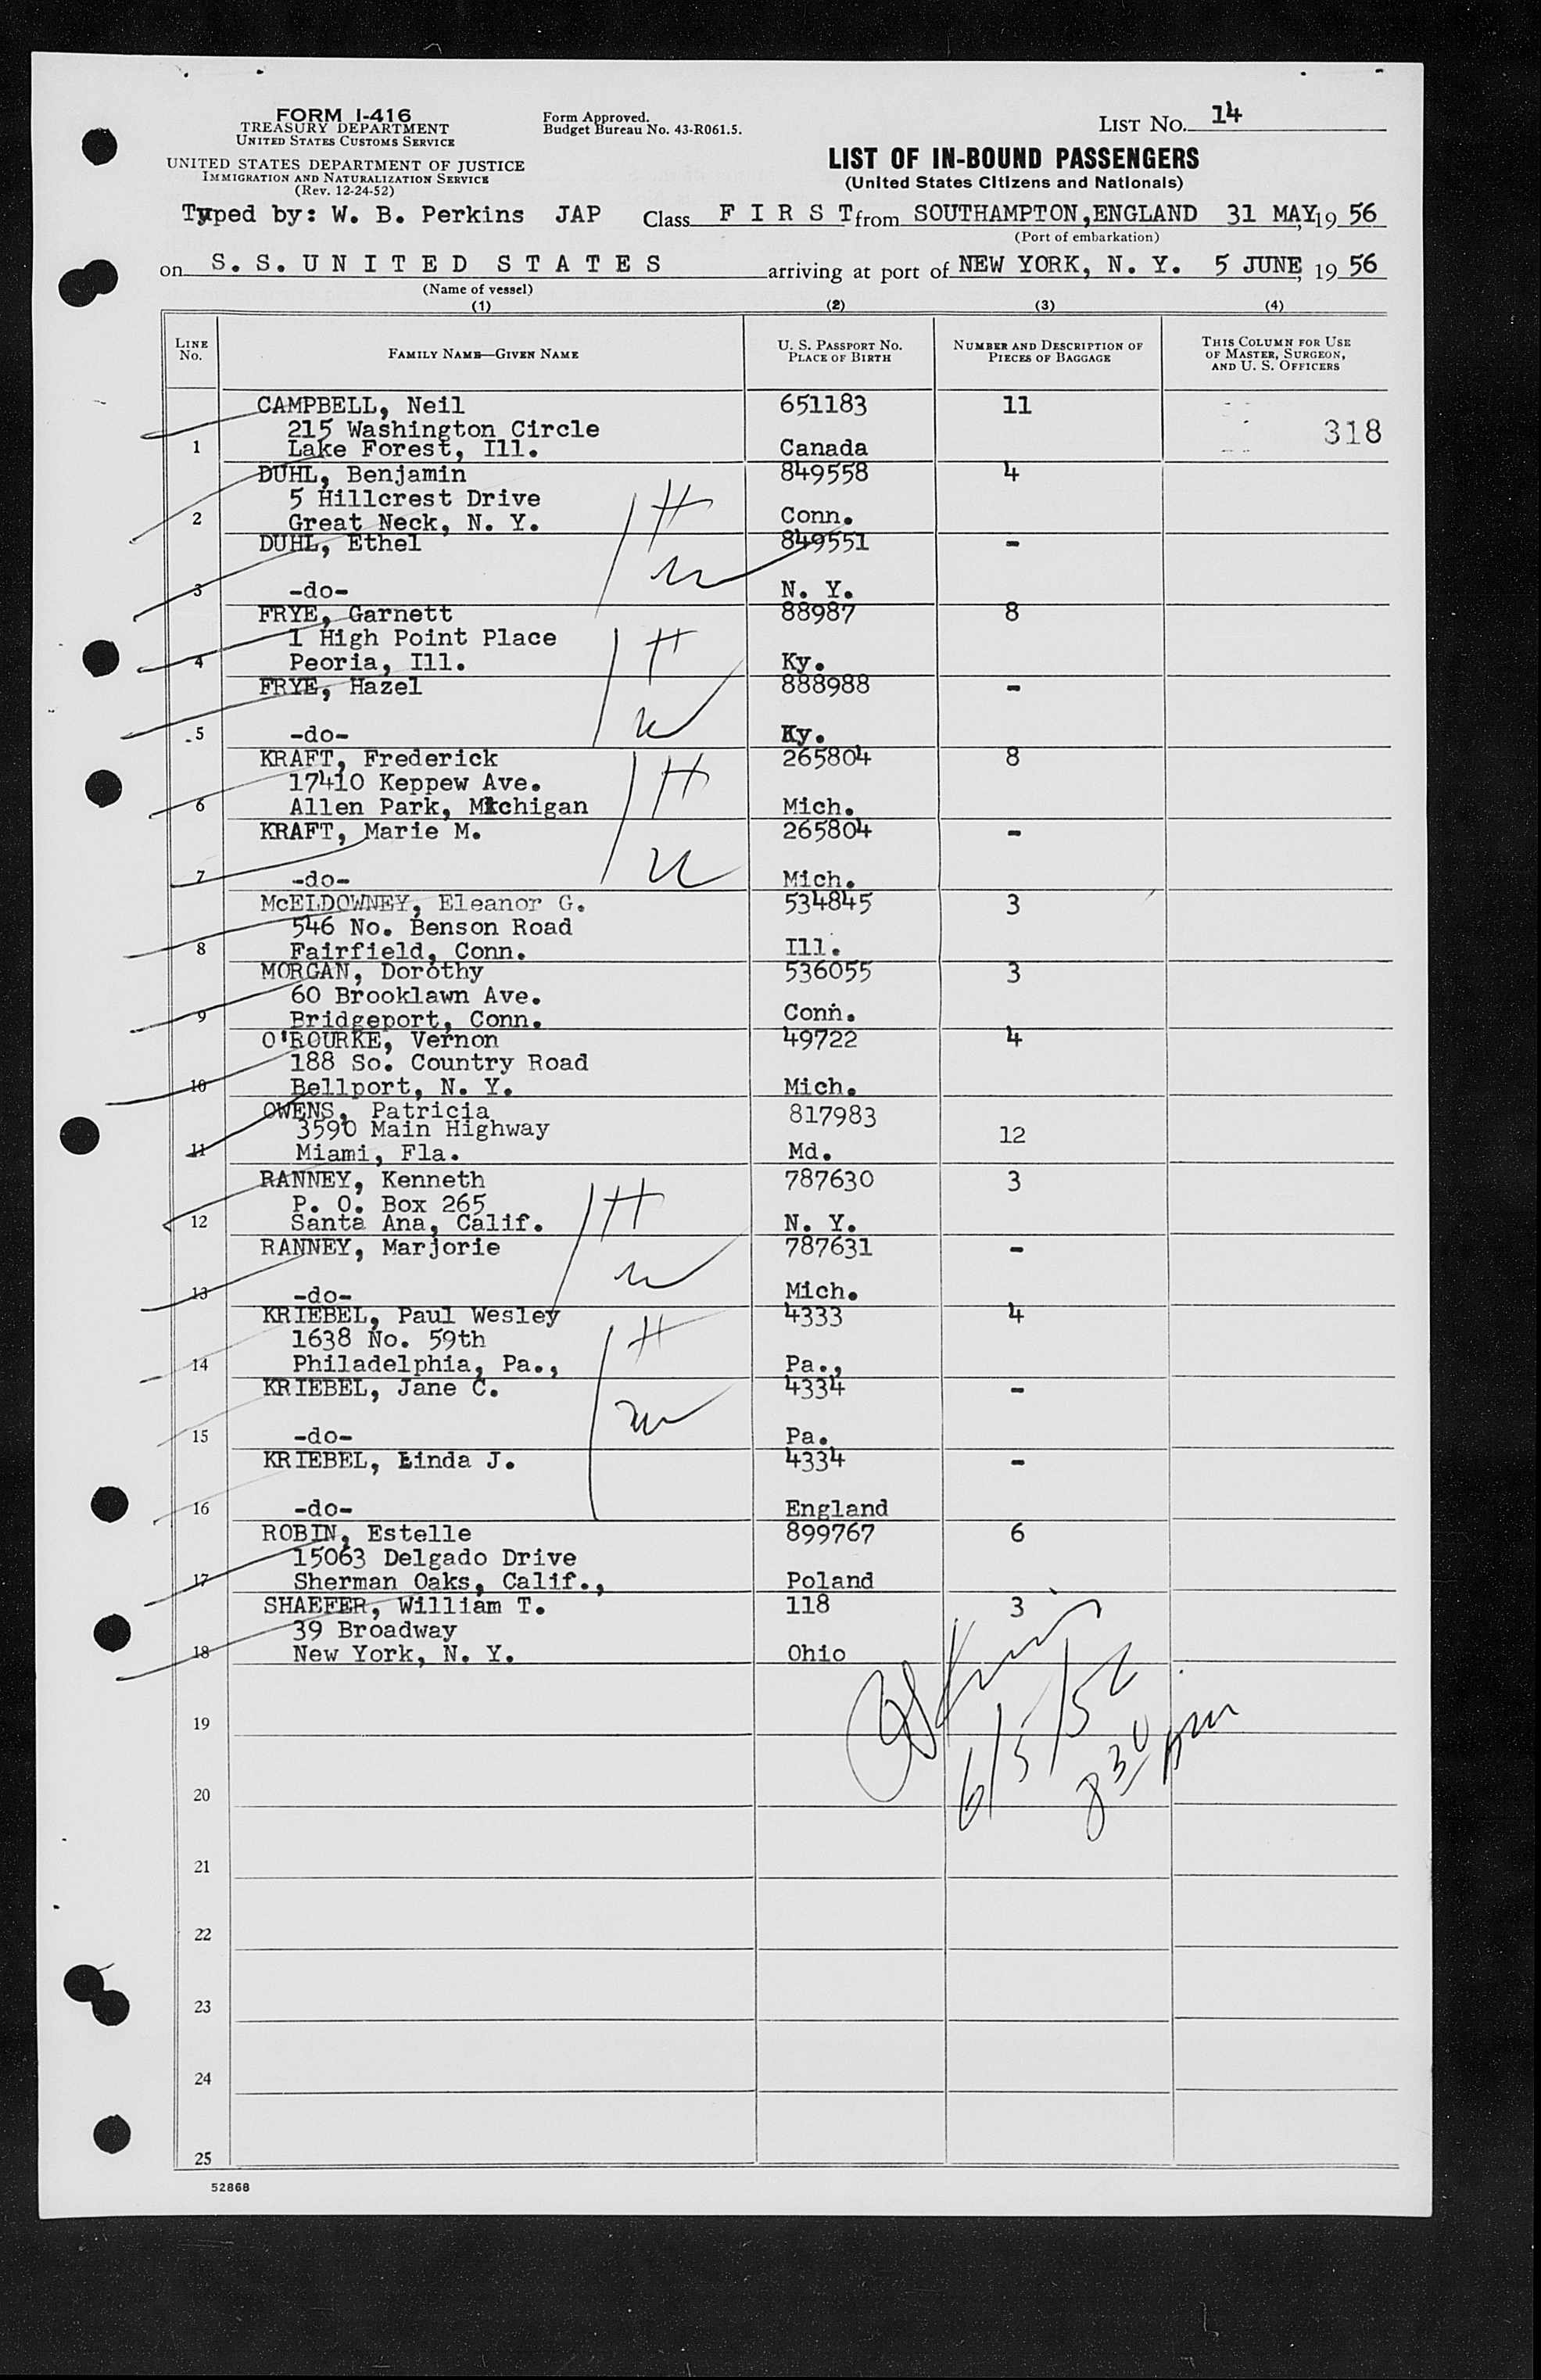 FORM I-416
TREASURY DEPARTMENT
UNITED STATES CUSTOMS SERVICE
UNITED STATES DEPARTMENT OF JUSTICE
IMMIGRATION AND NATURALIZATION SERVICE
(Rev. 12-24-52)
Form Approved.
Budget Bureau No. 43-R061.5.
LIST NO. 14
LIST OF IN-BOUND PASSENGERS
(United States Citizens and Nationals)
Typed by: W. B. Perkins JAP Class F I R S T from SOUTHAMPTON, ENGLAND 31 MAY, 19 56
(Port of embarkation)
on S. S. U N I T E D S T A T E S arriving at port of NEW YORK, N. Y. 5 JUNE, 19 56
(Name of vessel)
(1) (2) (3) (4)
LINE NO. FAMILY NAME—GIVEN NAME U. S. PASSPORT NO. PLACE OF BIRTH NUMBER AND DESCRIPTION OF PIECES OF BAGGAGE THIS COLUMN FOR USE OF MASTER, SURGEON, AND U. S. OFFICERS
CAMPBELL, Neil 651183 11
215 Washington Circle 318
1 Lake Forest, Ill. Canada
DUHL, Benjamin 849558 4
5 Hillcrest Drive H
2 Great Neck, N. Y. Conn.
DUHL, Ethel 849551 -
W
3 -do- N. Y.
FRYE, Garnett 88987 8
1 High Point Place H
4 Peoria, Ill. Ky.
FRYE, Hazel 888988 -
W
5 -do- Ky.
KRAFT, Frederick 265804 8
17410 Keppew Ave. H
6 Allen Park, Michigan Mich.
KRAFT, Marie M. 265804 -
W
7 -do- Mich.
McELDOWNEY, Eleanor G. 534845 3
546 No. Benson Road
8 Fairfield, Conn. Ill.
MORGAN, Dorothy 536055 3
60 Brooklawn Ave.
9 Bridgeport, Conn. Conn.
O'ROURKE, Vernon 49722 4
188 So. Country Road
10 Bellport, N. Y. Mich.
OWENS, Patricia 817983
3590 Main Highway 12
11 Miami, Fla. Md.
RANNEY, Kenneth 787630 3
P. O. Box 265 H
12 Santa Ana, Calif. N. Y.
RANNEY, Marjorie 787631 -
W
13 -do- Mich.
KRIEBEL, Paul Wesley 4333 4
1638 No. 59th H
14 Philadelphia, Pa., Pa.,
KRIEBEL, Jane C. 4334 -
W
15 -do- Pa.
KRIEBEL, Linda J. 4334 -
16 -do- England
ROBIN, Estelle 899767 6
15063 Delgado Drive
17 Sherman Oaks, Calif., Poland
SHAEFER, William T. 118 3
39 Broadway
18 New York, N. Y. Ohio
19
6/5/56
830 pm
20
21
22
23
24
25
52868